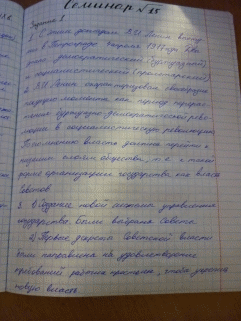 Семинар №25
Задание 1
1. С этим докладом В.И. Ленин высту-
пил в Петрограде 4 апреля 1917
демократической (буржуазной)
социалистической (пролетарской)
2. В.И. Ленин охарактеризовал своеобразие
момента как период перерас-
буржуазно демократической рево-
люции в социалистическую революцию
власть должна перейти к
слоям общества, т.е. к такой
форме организации государства как власть
Советов.
3. 1) Органом новой системы управления
государства были выбраны Советы.
2) Первые декреты Советской власти
были направлены на удовлетворение
требований чтобы
новую власть